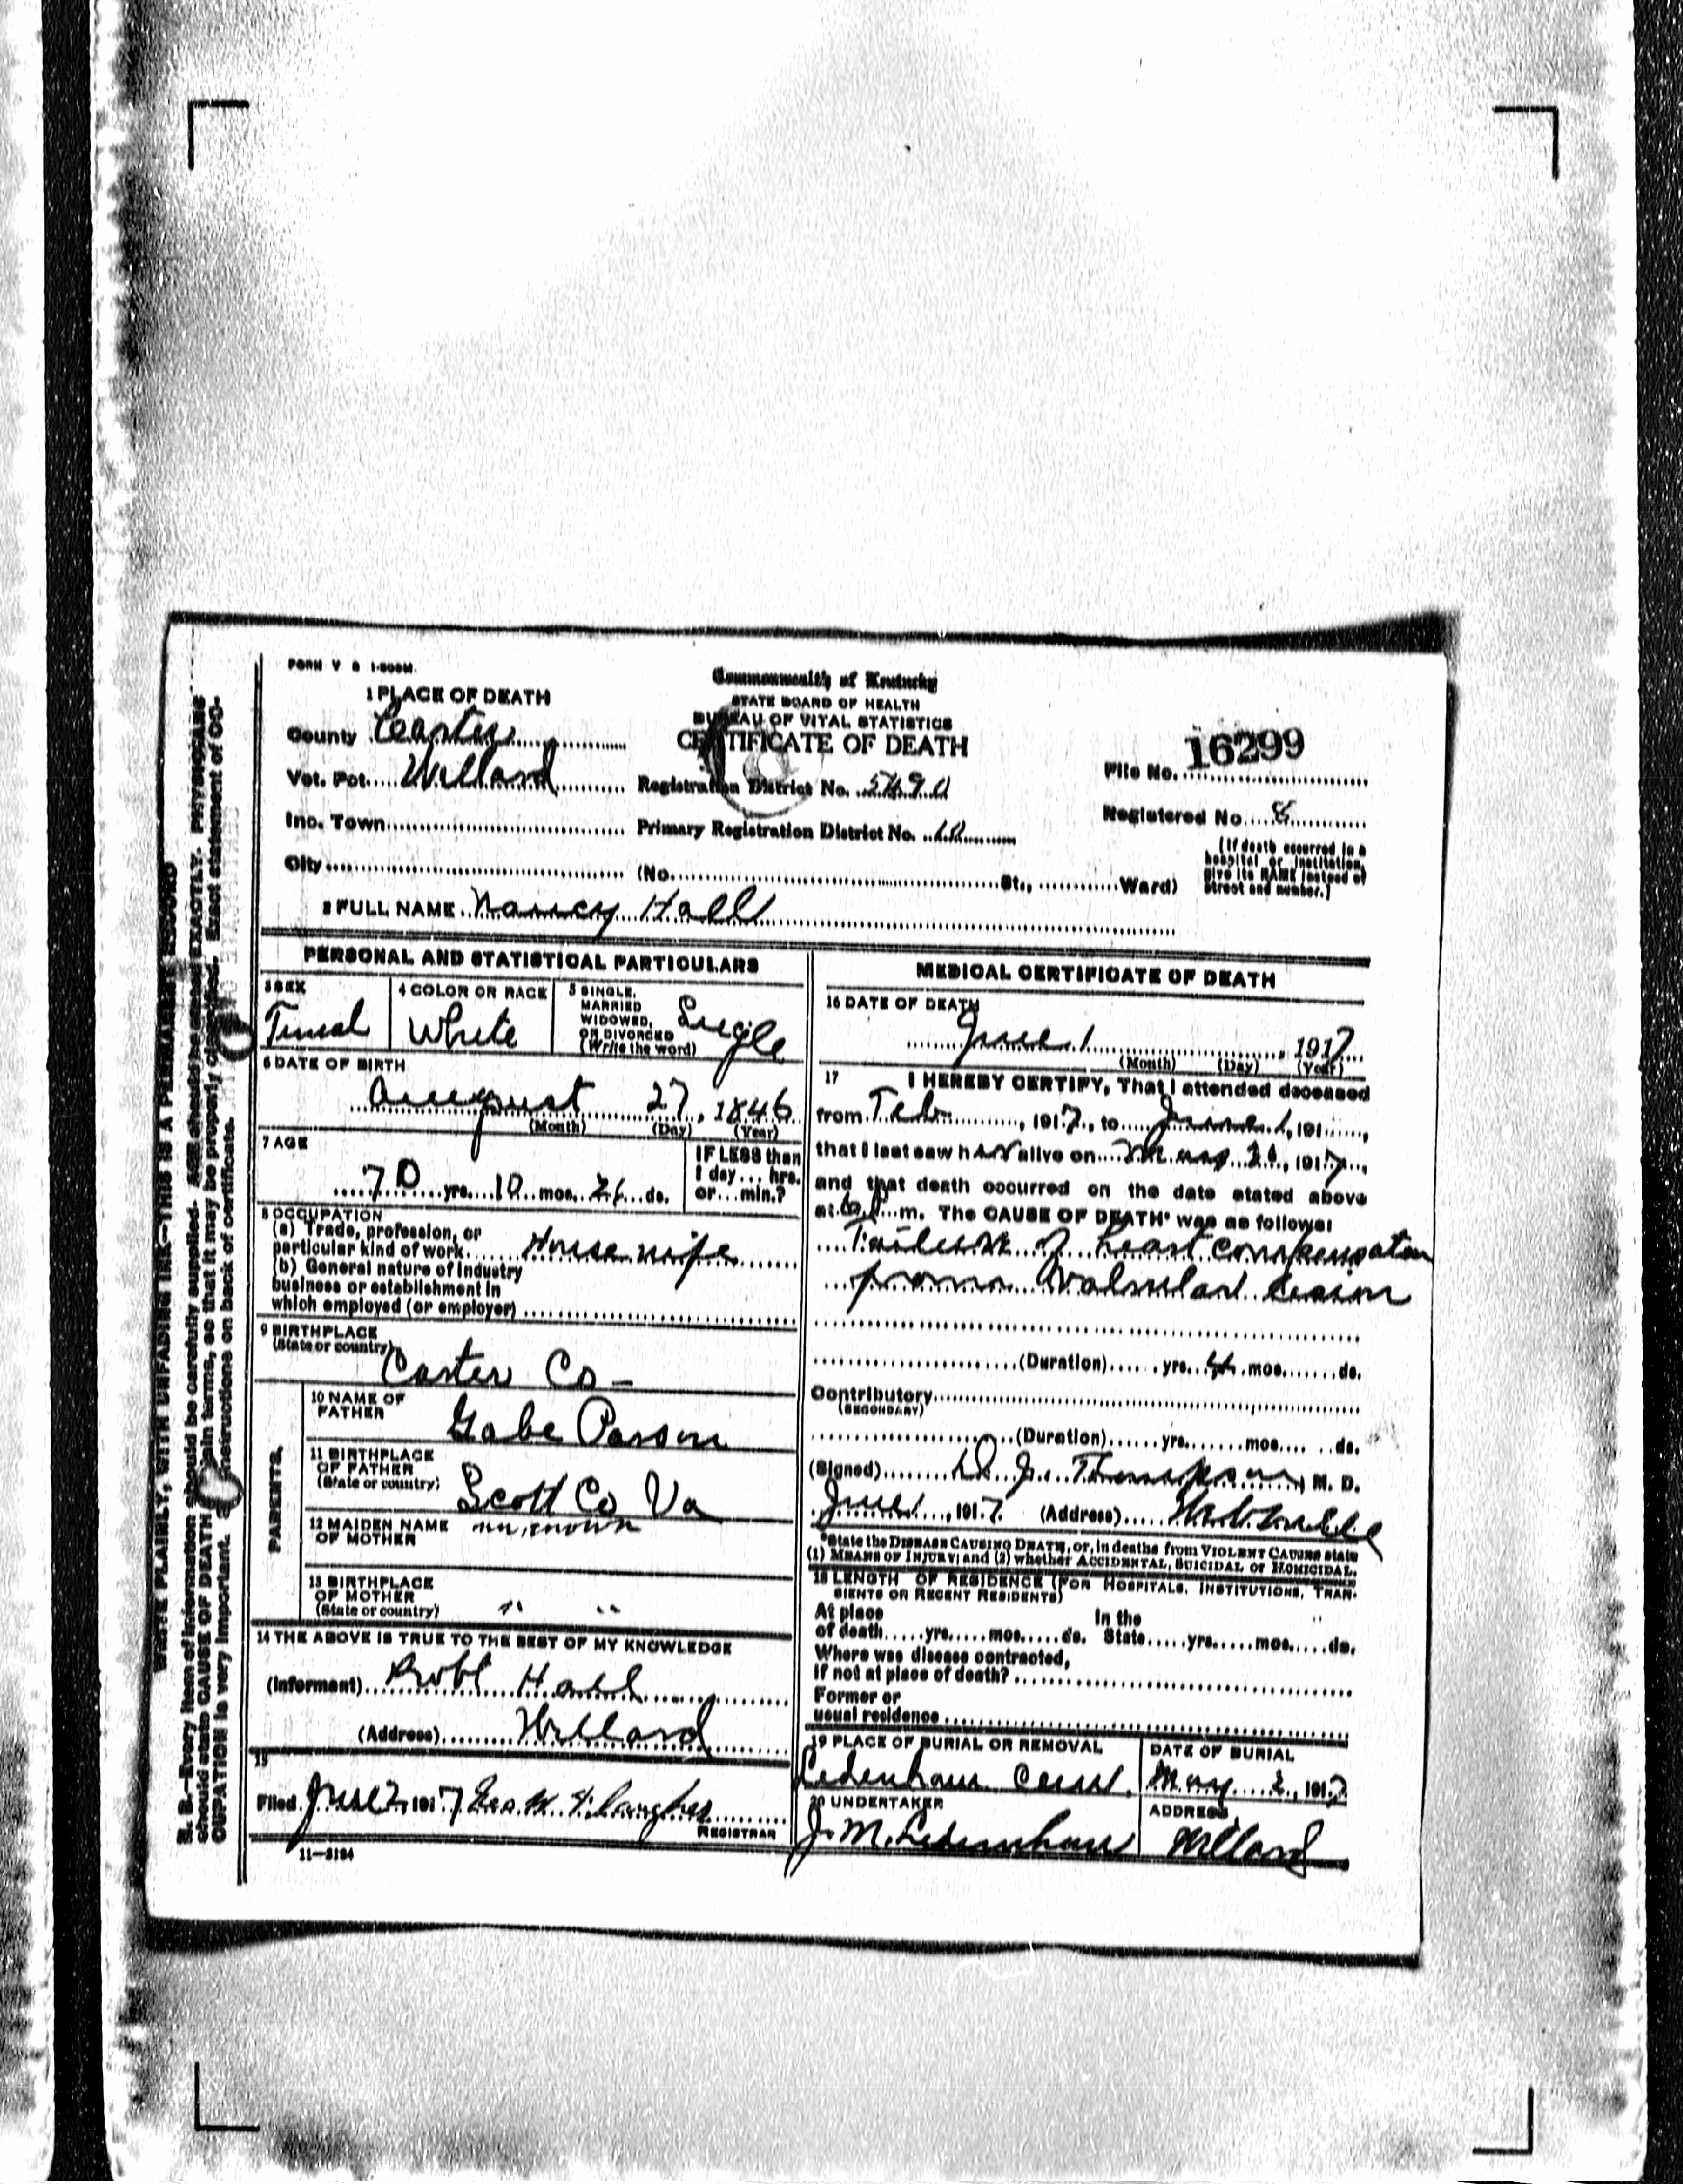 FORM V S 1-500M.
Commonwealth of Kentucky
STATE BOARD OF HEALTH
BUREAU OF VITAL STATISTICS
CERTIFICATE OF DEATH
1 PLACE OF DEATH
County Carter
Vot. Pct. Willard
Inc. Town
City
Registration District No. 5490
Primary Registration District No.
(No. St., Ward)
File No. 16299
Registered No. 8
[If death occurred in a
hospital or institution,
give its NAME instead of
street and number.]
2 FULL NAME Nancy Hall
PERSONAL AND STATISTICAL PARTICULARS
3 SEX
Fimal
4 COLOR OR RACE
White
5 SINGLE,
MARRIED
WIDOWED,
OR DIVORCED
(Write the word)
Single
6 DATE OF BIRTH
August 27, 1846
(Month) (Day) (Year)
7 AGE
70 yrs. 10 mos. ds.
IF LESS than
1 day ... hrs.
or ... min.?
8 OCCUPATION
(a) Trade, profession, or
particular kind of work House wife
(b) General nature of industry
business or establishment in
which employed (or employer)
9 BIRTHPLACE
(State or country)
Carter Co -
PARENTS.
10 NAME OF
FATHER
Gabe Parson
11 BIRTHPLACE
OF FATHER
(State or country)
Scott Co Va
12 MAIDEN NAME
OF MOTHER
unknown
13 BIRTHPLACE
OF MOTHER
(State or country)
" "
14 THE ABOVE IS TRUE TO THE BEST OF MY KNOWLEDGE
(Informant) Robt Hall
(Address) Willard
15
Filed June 2, 1917 Geo. W.
REGISTRAR
11-3184
MEDICAL CERTIFICATE OF DEATH
16 DATE OF DEATH
June 1, 1917
(Month) (Day) (Year)
17 I HEREBY CERTIFY, That I attended deceased
from Feb, 1917, to June 1, 191
that I last saw her alive on May, 1917,
and that death occurred on the date stated above
at m. The CAUSE OF DEATH* was as follows:
Failure of heart compensation
from Valvular Lesion
(Duration) yrs. 4 mos. ds.
Contributory
(SECONDARY)
(Duration) yrs. mos. ds.
(Signed) J. Thompson, M. D.
June 1, 1917 (Address)
*State the DISEASE CAUSING DEATH, or, in deaths from VIOLENT CAUSES state
(1) MEANS OF INJURY; and (2) whether ACCIDENTAL, SUICIDAL OR HOMICIDAL.
18 LENGTH OF RESIDENCE (FOR HOSPITALS, INSTITUTIONS, TRAN-
SIENTS OR RECENT RESIDENTS)
At place
of death yrs. mos. ds.
In the
State yrs. mos. ds.
Where was disease contracted,
If not at place of death?
Former or
usual residence
19 PLACE OF BURIAL OR REMOVAL
DATE OF BURIAL
May 2, 1917
20 UNDERTAKER
J. M.
ADDRESS
Willard
WRITE PLAINLY, WITH UNFADING INK—THIS IS A PERMANENT RECORD
N. B.—Every item of information should be carefully supplied. AGE should be stated EXACTLY. PHYSICIANS
should state CAUSE OF DEATH in plain terms, so that it may be properly classified. Exact statement of OC-
CUPATION is very important. See instructions on back of certificate.